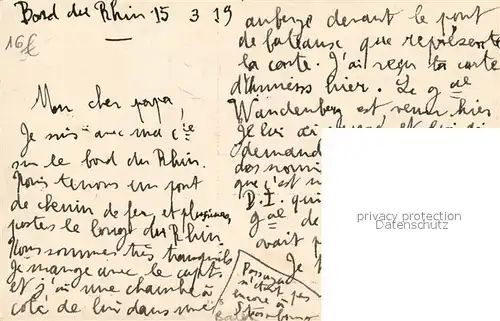 Bord du Rhin 15 3 19
16 f
Mon cher papa,
Je suis avec ma Cie
sur le bord du Rhin.
Nous tenons un pont
de chemin de fer, et plusieurs
postes le long du Rhin.
Nous sommes très tranquils
Je mange avec le capt.
et j'ai une chambre à
coté de lui dans une
auberge devant le pont
de bateaux que représente
la carte. J'ai reçu ta carte
d'Amiens hier. Le gal
Wandenberg est venu hier
Je lui ai et lui ai
demand
des
que c'est
D.I. qui
gal de
avait
Je
n'était pas
encore à
Strasbourg
privacy protection
Datenschutz